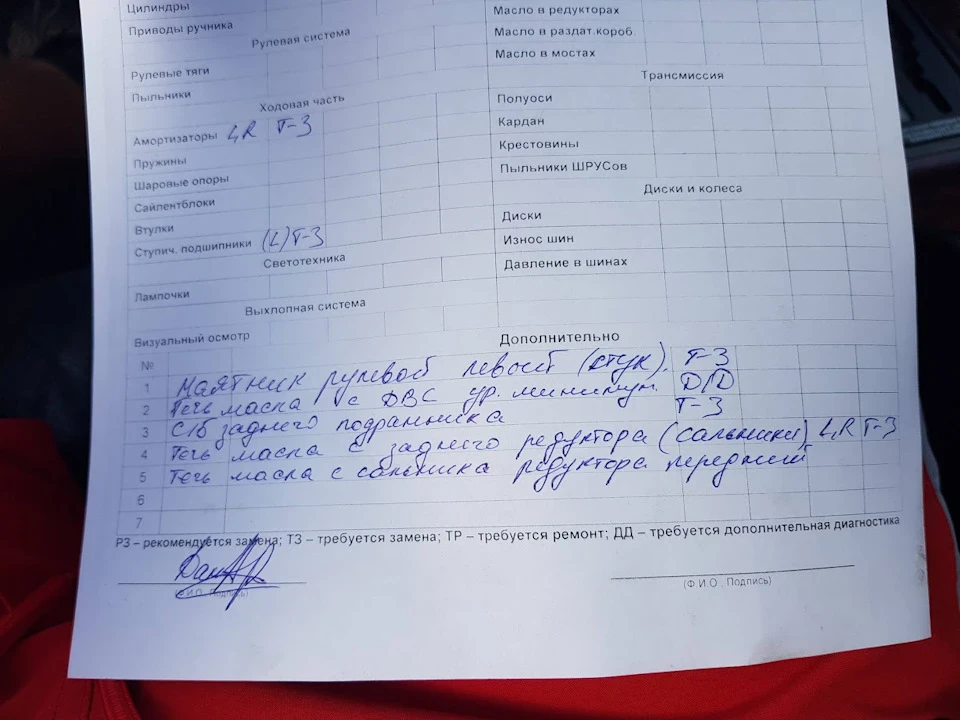 Цилиндры
Приводы ручника
Рулевая система
Рулевые тяги
Пыльники
Ходовая часть
Амортизаторы LR Т-З
Пружины
Шаровые опоры
Сайлентблоки
Втулки
Ступич. подшипники (L) Т-З
Светотехника
Лампочки
Выхлопная система
Визуальный осмотр
Масло в редукторах
Масло в раздат.короб
Масло в мостах
Трансмиссия
Полуоси
Кардан
Крестовины
Пыльники ШРУСов
Диски и колеса
Диски
Износ шин
Давление в шинах
№ Дополнительно
1 Маятник рулевой левый (стук). Т-З
2 Течь масла с ДВС ур. минимум. Д/Д
3 С/б заднего подрамника Т-З
4 Течь масла с заднего редуктора (сальники) LR Т-З
5 Течь масла с сальника редуктора передний
6
7
РЗ – рекомендуется замена; ТЗ – требуется замена; ТР – требуется ремонт; ДД – требуется дополнительная диагностика
(Ф.И.О., Подпись)
(Ф.И.О., Подпись)